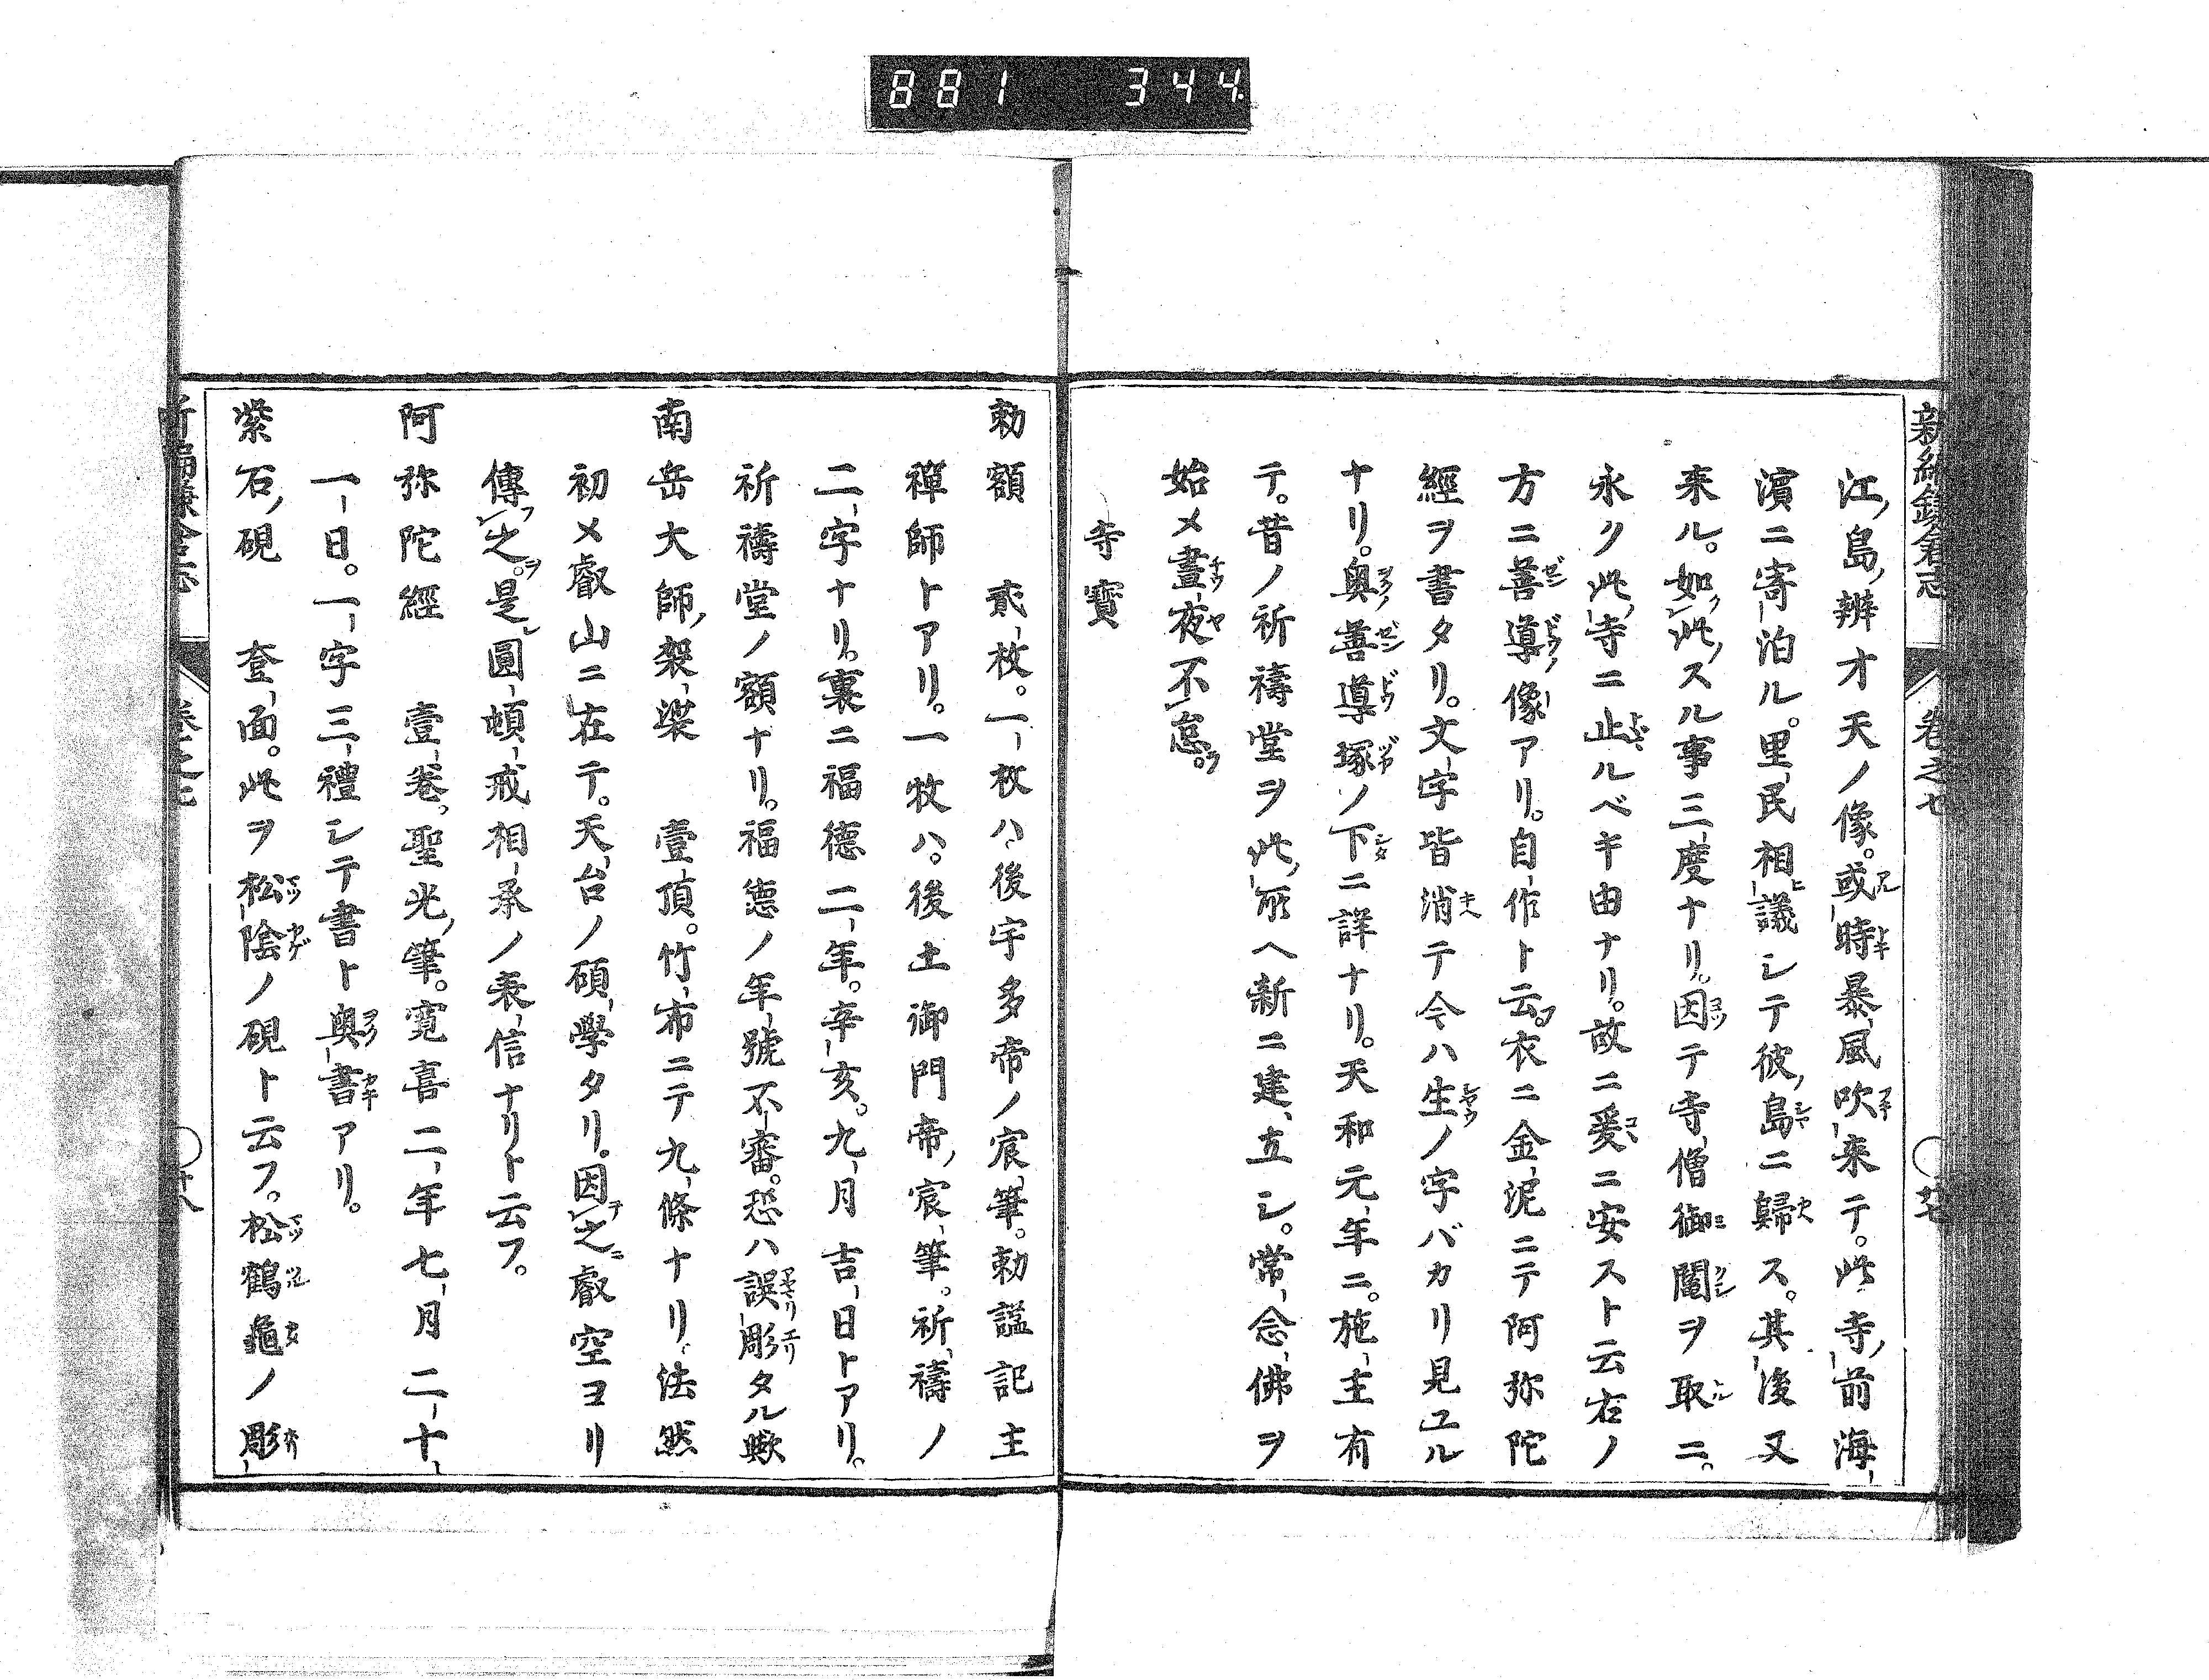 881 344.
新編鎌倉志 卷之七 ○廿七
江ノ島ノ辨才天ノ像。或時暴風吹來テ。此寺ノ前海
濱ニ寄泊ル。里民相議シテ彼ノ島ニ歸ス。其後又
來ル。如此ノスル事三度ナリ。因テ寺僧御鬮ヲ取ニ。
永ク此ノ寺ニ止ルベキ由ナリ。故ニ爰ニ安スト云右ノ
方ニ善導ノ像アリ。自作ト云フ。衣ニ金泥ニテ阿弥陀
經ヲ書タリ。文字皆消テ今ハ生ノ字バカリ見ユル
ナリ。奥ノ善導塚ノ下ニ詳ナリ。天和元年ニ。施主有
テ。昔ノ祈禱堂ヲ此ノ所ヘ新ニ建立シ。常念佛ヲ
始メ晝夜不怠ラ。
寺寳
勅額 貳枚。一枚ハ後宇多帝ノ宸筆。勅謚記主
禪師トアリ。一枚ハ。後土御門帝ノ宸筆。祈禱ノ
二字ナリ。裏ニ福德二年。辛亥。九月吉日トアリ。
祈禱堂ノ額ナリ。福德ノ年號不審。恐ハ誤彫タル歟
南岳大師ノ袈裟 壹頂。竹布ニテ九條ナリ法然
初メ叡山ニ在テ。天台ノ碩學タリ。因テ之ニ叡空ヨリ
傳フ之ヲ。是圓頓戒相承ノ表信ナリト云フ。
阿弥陀經 壹卷。聖光ノ筆。寛喜二年七月二十
一日。一字三禮シテ書ト奥書アリ。
紫石ノ硯 壹面。此ヲ松陰ノ硯ト云フ。松鶴龜ノ彫
新編鎌倉志 卷之七 ○廿八